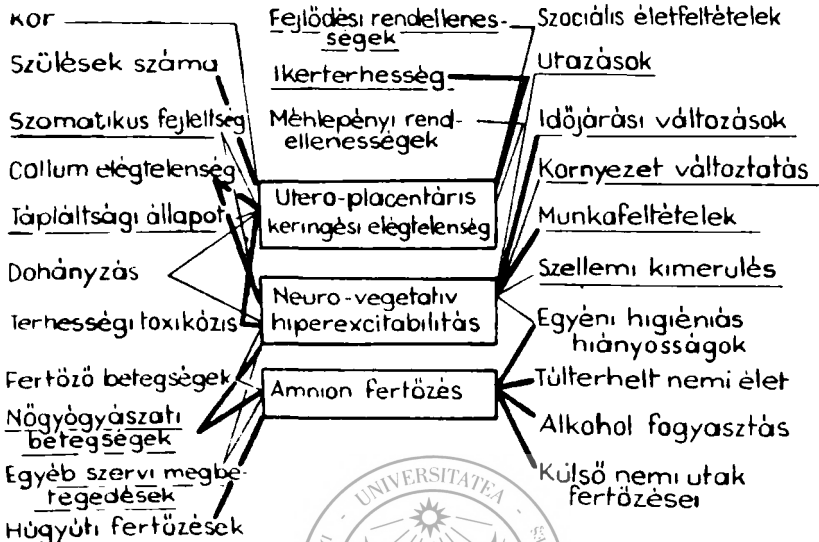 Kor
Szülések száma
Szomatikus fejlettség
Collum elégtelenség
Tápláltsági állapot
Dohányzás
Terhességi toxikózis
Fertőző betegségek
Nőgyógyászati
betegségek
Egyéb szervi megbe-
tegedések
Húgyúti fertőzések
Fejlődési rendellenes-
ségek
Ikerterhesség
Méhlepényi rend-
ellenességek
Utero-placentáris
keringési elégtelenség
Neuro-vegetatív
hiperexcitabilitás
Amnion fertőzés
Szociális életfeltételek
Utazások
Időjárási változások
Környezet változtatás
Munkafeltételek
Szellemi kimerülés
Egyéni higiéniás
hiányosságok
Túlterhelt nemi élet
Alkohol fogyasztás
Külső nemi utak
fertőzései
UNIVERSITATEA